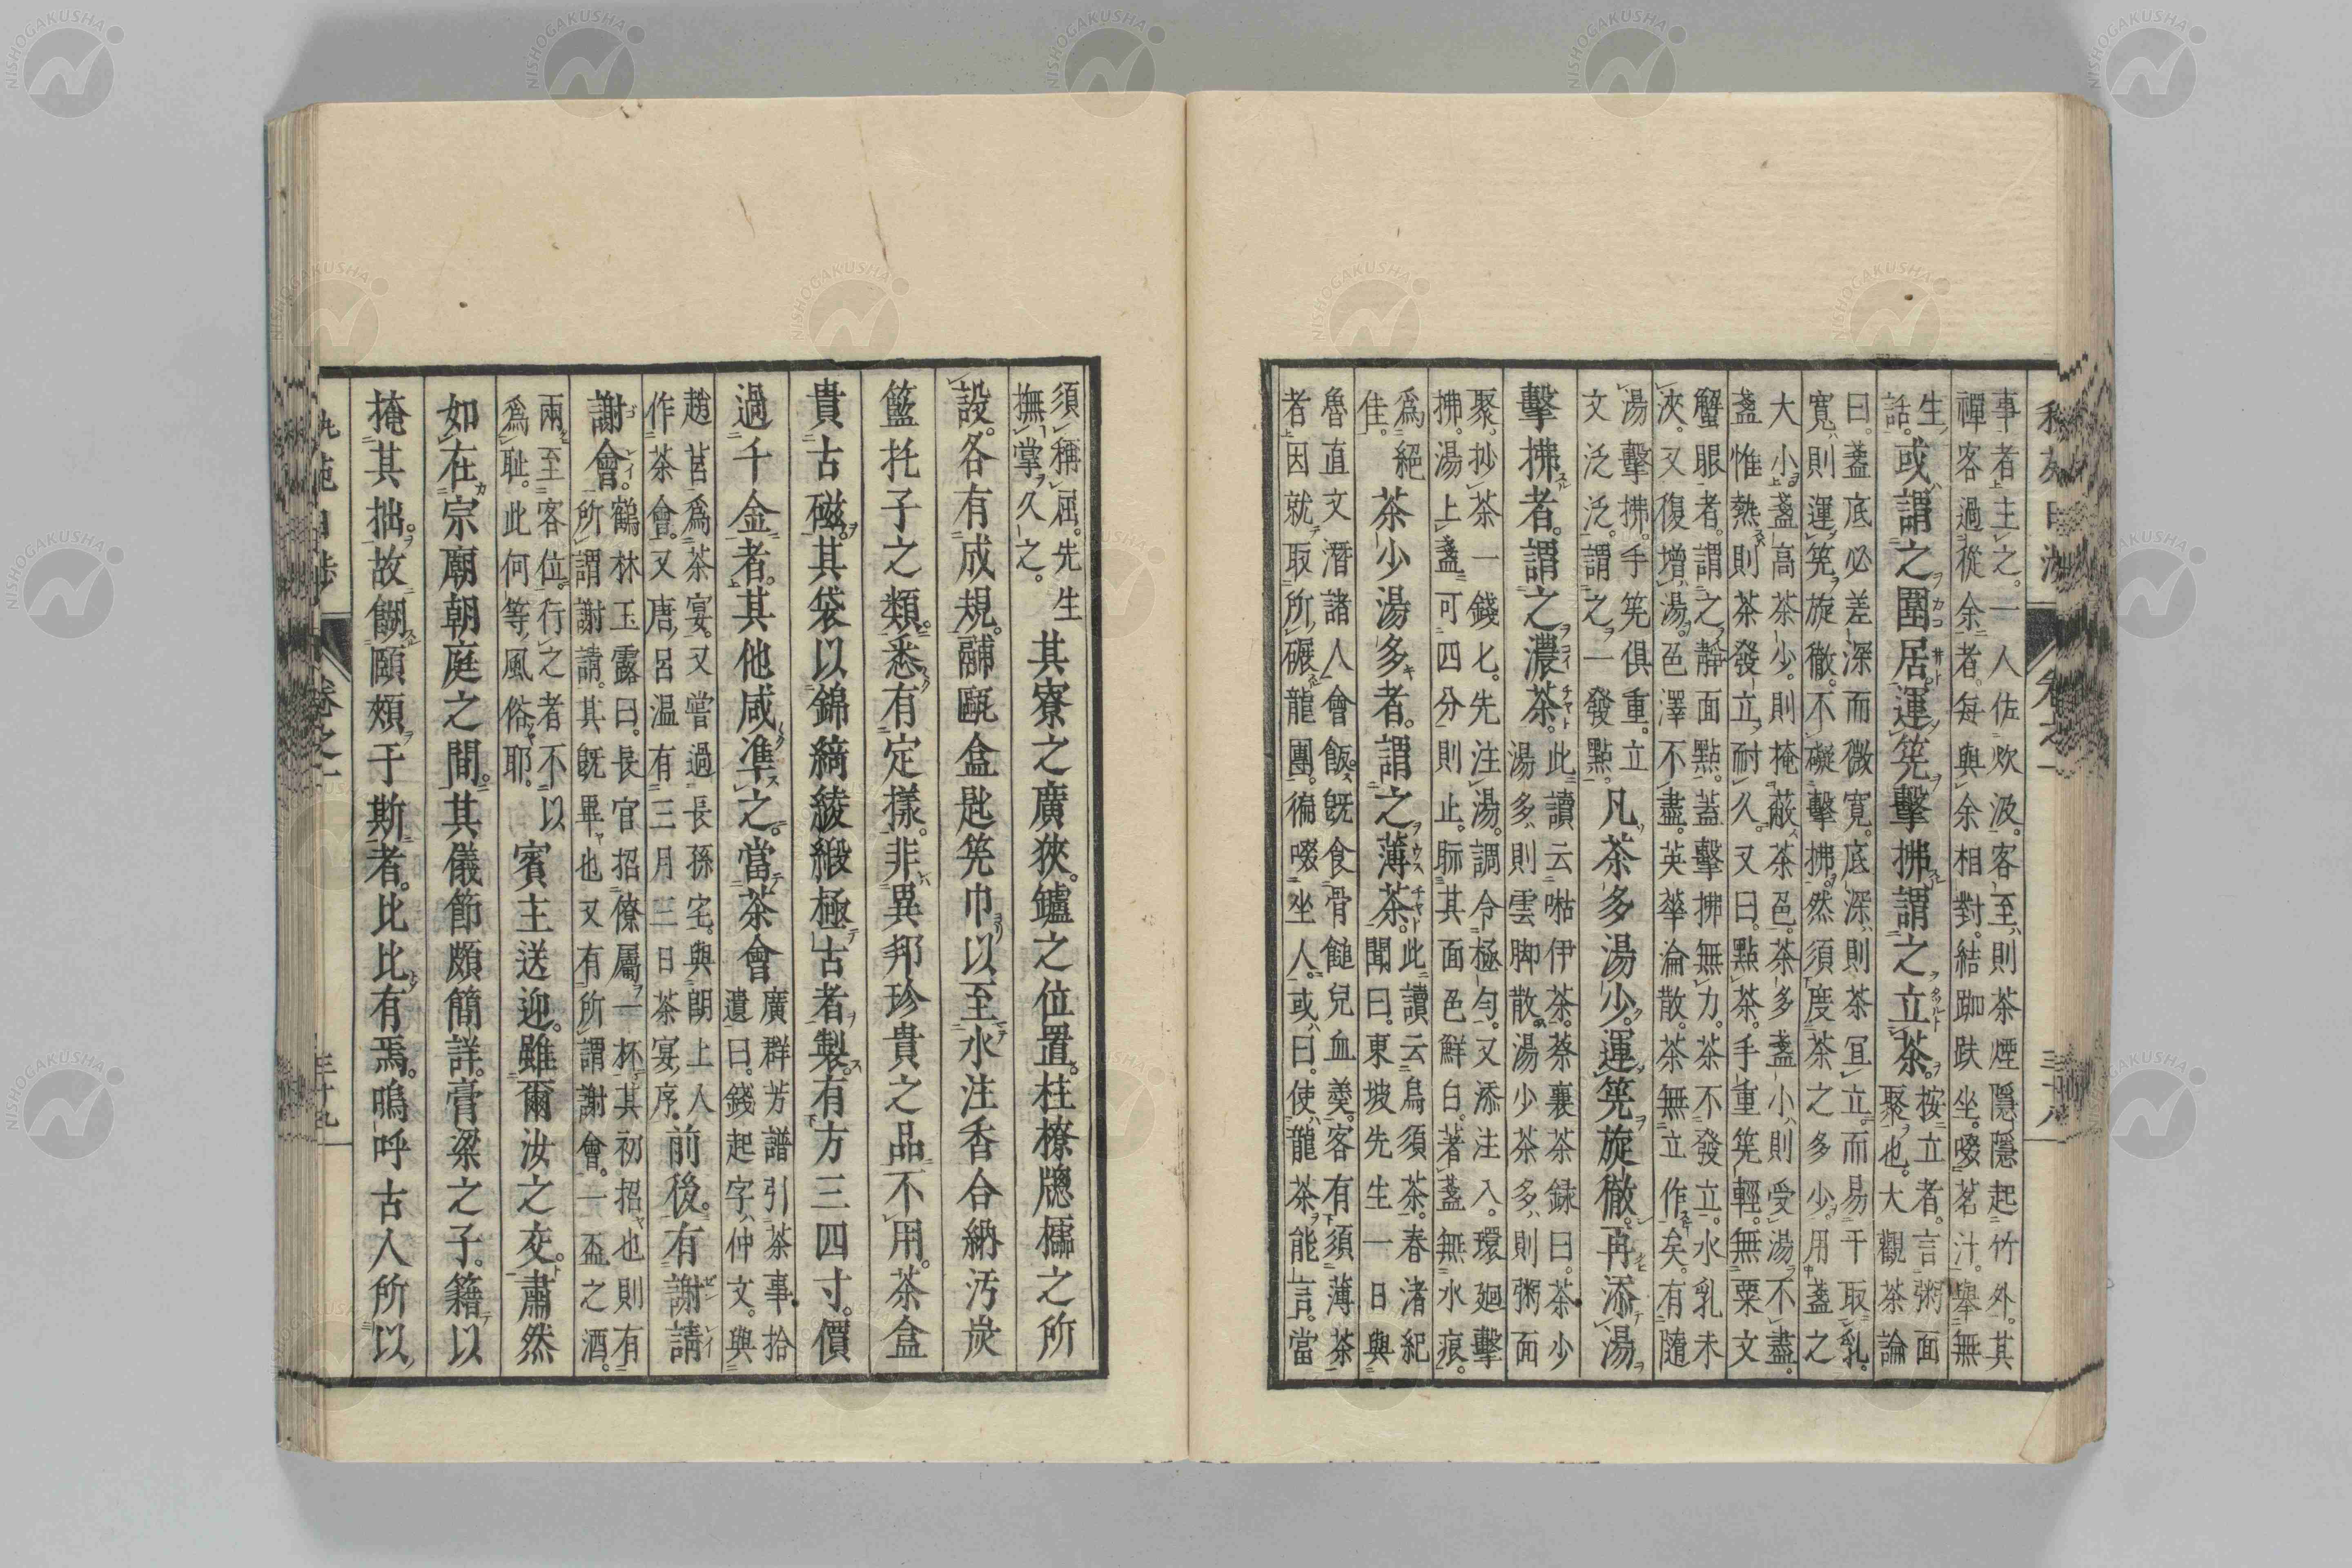 事者主之。一人佐炊汲。客至則茶煙隱隱起竹外。其
禪客過從余者。每與余相對。結跏趺坐。啜茗汁。舉無
生話。或謂之圍居。運筅擊拂謂之立茶。按立者。言粥面聚也。大觀茶論
曰。盞底必差深而微寬。底深則茶宜立。而易于取乳。
寬則運筅旋徹。不礙擊拂。然須度茶之多少。用盞之
大小。盞高茶少。則掩蔽茶色。茶多盞小。則受湯不盡。
盞惟熱則茶發立。耐久。又曰。點茶。手重筅輕。無粟文
蟹眼者。謂之靜面點。蓋擊拂無力。茶不發立。水乳未
浹。又復增湯。色澤不盡。英華淪散。茶無立作矣。有隨
湯擊拂。手筅俱重。立
文泛泛。謂之一發點。凡茶多湯少。運筅旋徹。再添湯
擊拂者。謂之濃茶。此讀云咕伊茶。蔡襄茶錄曰。茶少湯多。則雲脚散。湯少茶多。則粥面
聚。抄茶一錢匕。先注湯。調令極勻。又添注入。環廻擊
拂。湯上盞可四分則止。眎其面色鮮白。著盞無水痕。
爲絕
佳。茶少湯多者。謂之薄茶。此讀云烏須茶。春渚紀聞曰。東坡先生一日與
魯直文潛諸人會飯。既食骨䭔兒血羹。客有須薄茶
者。因就取所碾龍團。徧啜坐人。或曰。使龍茶能言。當
卷之一
三十八
須稱屈。先生
撫掌久之。其寮之廣狹。鑪之位置。柱橑牕櫺之所
設。各有成規。鬴甌盒匙筅巾。以至水注香合納汚炭
籃托子之類。悉有定樣。非異邦珍貴之品不用。茶盒
貴古磁。其袋以錦綺綾緞極古者製。有方三四寸。價
過千金者。其他咸準之。當茶會廣群芳譜引茶事拾遺曰。錢起字仲文。與
趙莒爲茶宴。又嘗過長孫宅。與朗上人
作茶會。又唐呂温有三月三日茶宴序。前後。有謝請
謝會。鶴林玉露曰。長官招僚屬一杯。其初招也則有所謂謝請。其既畢也又有所謂謝會。一盃之酒。
兩至客位。行之者不以
爲耻。此何等風俗耶。賓主送迎。雖爾汝之交。肅然
如在宗廟朝庭之間。其儀節頗簡詳。膏粱之子。籍以
掩其拙。故餬頤頰于斯者。比比有焉。嗚呼古人所以
卷之一
三十九